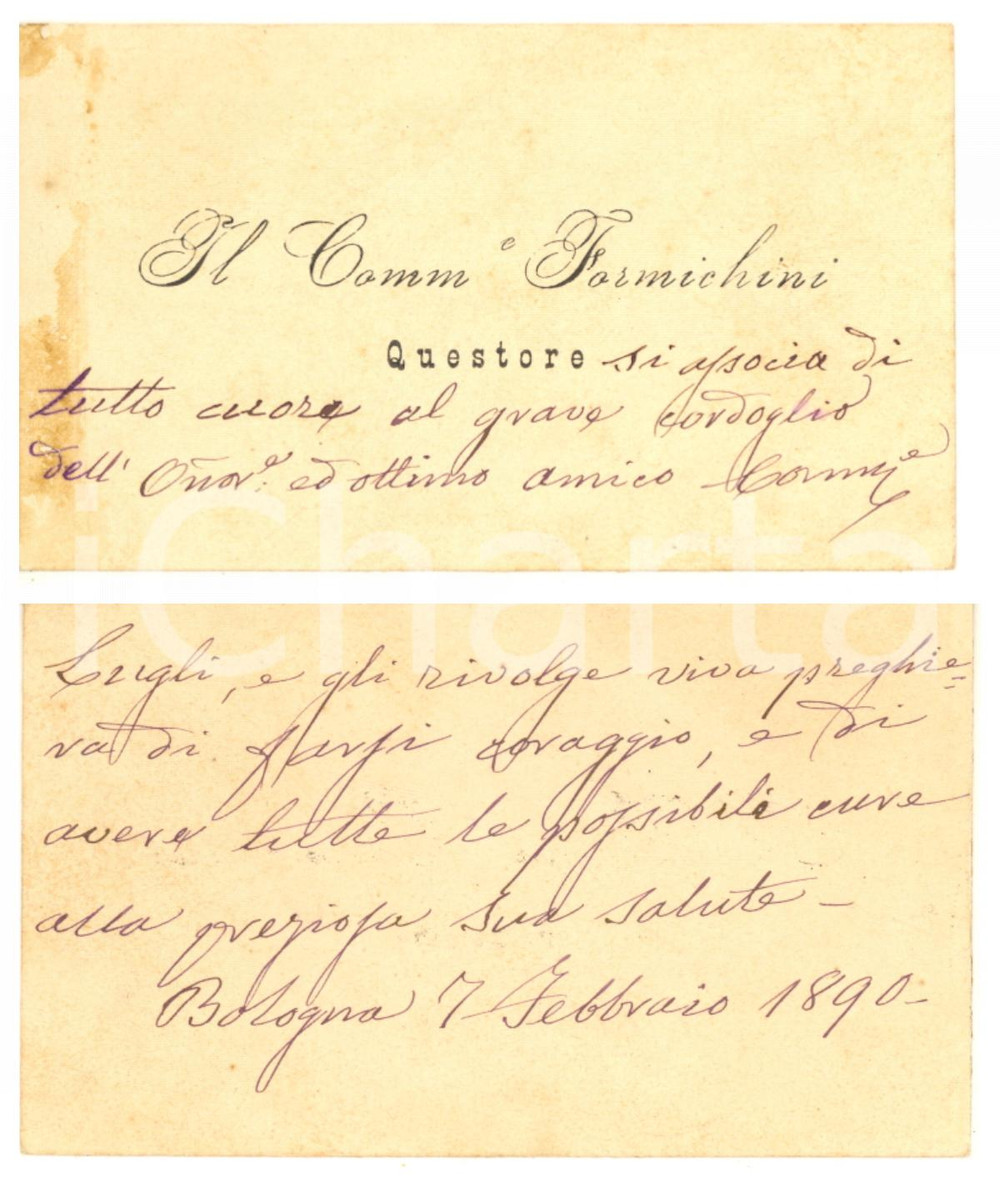 Il Comm.e Formichini
Questore si associa di
tutto cuore al grave cordoglio
dell' Onor.e ed ottimo amico Comm.e
iCharta
Lugli, e gli rivolge viva preghie=
ra di farsi coraggio, e di
avere tutte le possibili cure
alla preziosa sua salute -
Bologna 7 Febbraio 1890 -